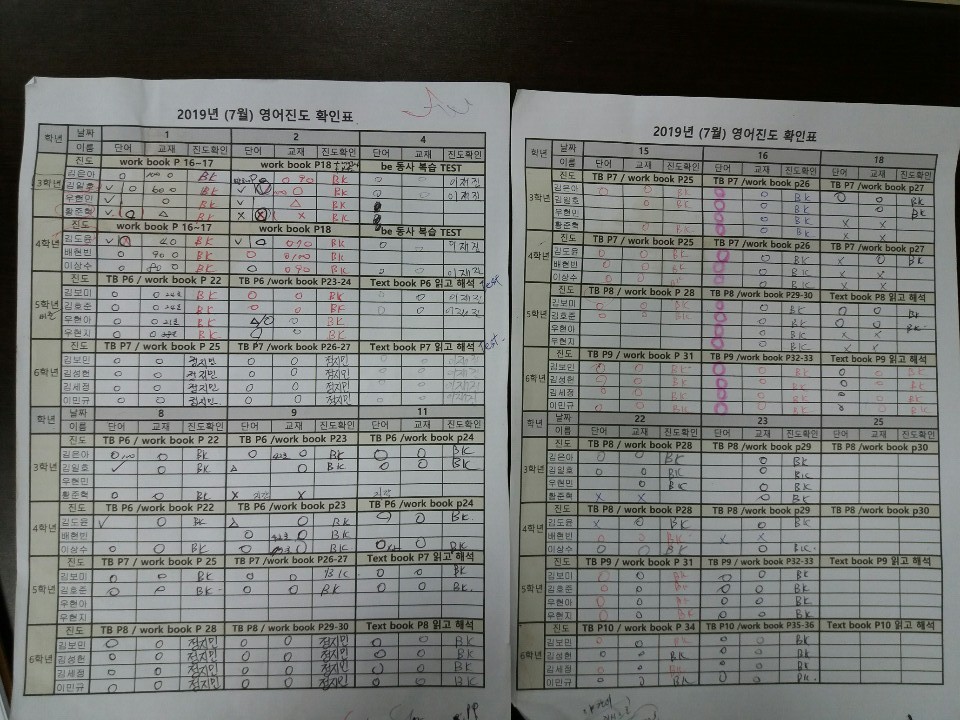 2019년 (7월) 영어진도 확인표
학년 날짜 1 2 4
이름 단어 교재 진도확인 단어 교재 진도확인 단어 교재 진도확인
진도 work book P 16~17 work book P18 be 동사 복습 TEST
3학년 김은아 BK BK 이재진
김일호 BK BK 이재진
우현민 BK BK
황준혁 BK BK
진도 work book P 16~17 work book P18 be 동사 복습 TEST
4학년 김도윤 BK BK 이재진
배현빈 BK BK
이상수 BK BK 이재진
진도 TB P6 / work book P 22 TB P6 /work book P23-24 Text book P6 읽고 해석 test
5학년 김보미 BK BK 이재진
김호준 BK BK 이재진
우현아 BK BK
우현지 BK BK
진도 TB P7 / work book P 25 TB P7 / work book P26-27 Text book P7 읽고 해석 test
6학년 김보민 정지민 정지민 이재진
김성헌 정지민 정지민 이재진
김세정 정지민 정지민 이재진
이민규 정지민 정지민 이재진
학년 날짜 8 9 11
이름 단어 교재 진도확인 단어 교재 진도확인 단어 교재 진도확인
진도 TB P6 / work book P 22 TB P6 /work book P23 TB P6 /work book p24
3학년 김은아 BK BK BK
김일호 BK BK BK
우현민
황준혁 BK X X
진도 TB P6 / work book P22 TB P6 /work book p23 TB P6 /work book p24
4학년 김도윤 BK BK BK
배현빈 BK
이상수 BK BK BK
진도 TB P7 / work book P 25 TB P7 / work book P26-27 Text book P7 읽고 해석
5학년 김보미 BK BK BK
김호준 BK BK BK
우현아
우현지
진도 TB P8 / work book P 28 TB P8 / work book P29-30 Text book P8 읽고 해석
6학년 김보민 정지민 정지민 BK
김성헌 정지민 정지민 BK
김세정 정지민 정지민 BK
이민규 정지민 정지민 BK
2019년 (7월) 영어진도 확인표
학년 날짜 15 16 18
이름 단어 교재 진도확인 단어 교재 진도확인 단어 교재 진도확인
진도 TB P7 / work book P25 TB P7 /work book p26 TB P7 /work book p27
3학년 김은아 BK BK BK
김일호 BK BK BK
우현민 BK
황준혁 BK BK X X
진도 TB P7 / work book P25 TB P7 /work book p26 TB P7 /work book p27
4학년 김도윤 BK BK X BK
배현빈 BK BK X X
이상수 BK BK X X
진도 TB P8 / work book P 28 TB P8 /work book P29-30 Text book P8 읽고 해석
5학년 김보미 BK BK BK
김호준 BK BK BK
우현아 BK X X
우현지 BK X X
진도 TB P9 / work book P 31 TB P9 /work book P32-33 Text book P9 읽고 해석
6학년 김보민 BK BK BK
김성헌 BK BK BK
김세정 BK BK BK
이민규 BK BK BK
학년 날짜 22 23 25
이름 단어 교재 진도확인 단어 교재 진도확인 단어 교재 진도확인
진도 TB P8 / work book P28 TB P8 /work book p29 TB P8 /work book p30
3학년 김은아 BK BK
김일호 BK BK
우현민 BK BK
황준혁 X X BK
진도 TB P8 / work book P28 TB P8 /work book p29 TB P8 /work book p30
4학년 김도윤 X BK BK
배현빈 BK X X
이상수 BK BK
진도 TB P9 / work book P 31 TB P9 /work book P32-33 Text book P9 읽고 해석
5학년 김보미 BK BK
김호준 BK BK
우현아 BK BK
우현지 BK BK
진도 TB P10 / work book P 34 TB P10 /work book P35-36 Text book P10 읽고 해석
6학년 김보민 BK BK
김성헌 BK BK
김세정 BK BK
이민규 BK BK